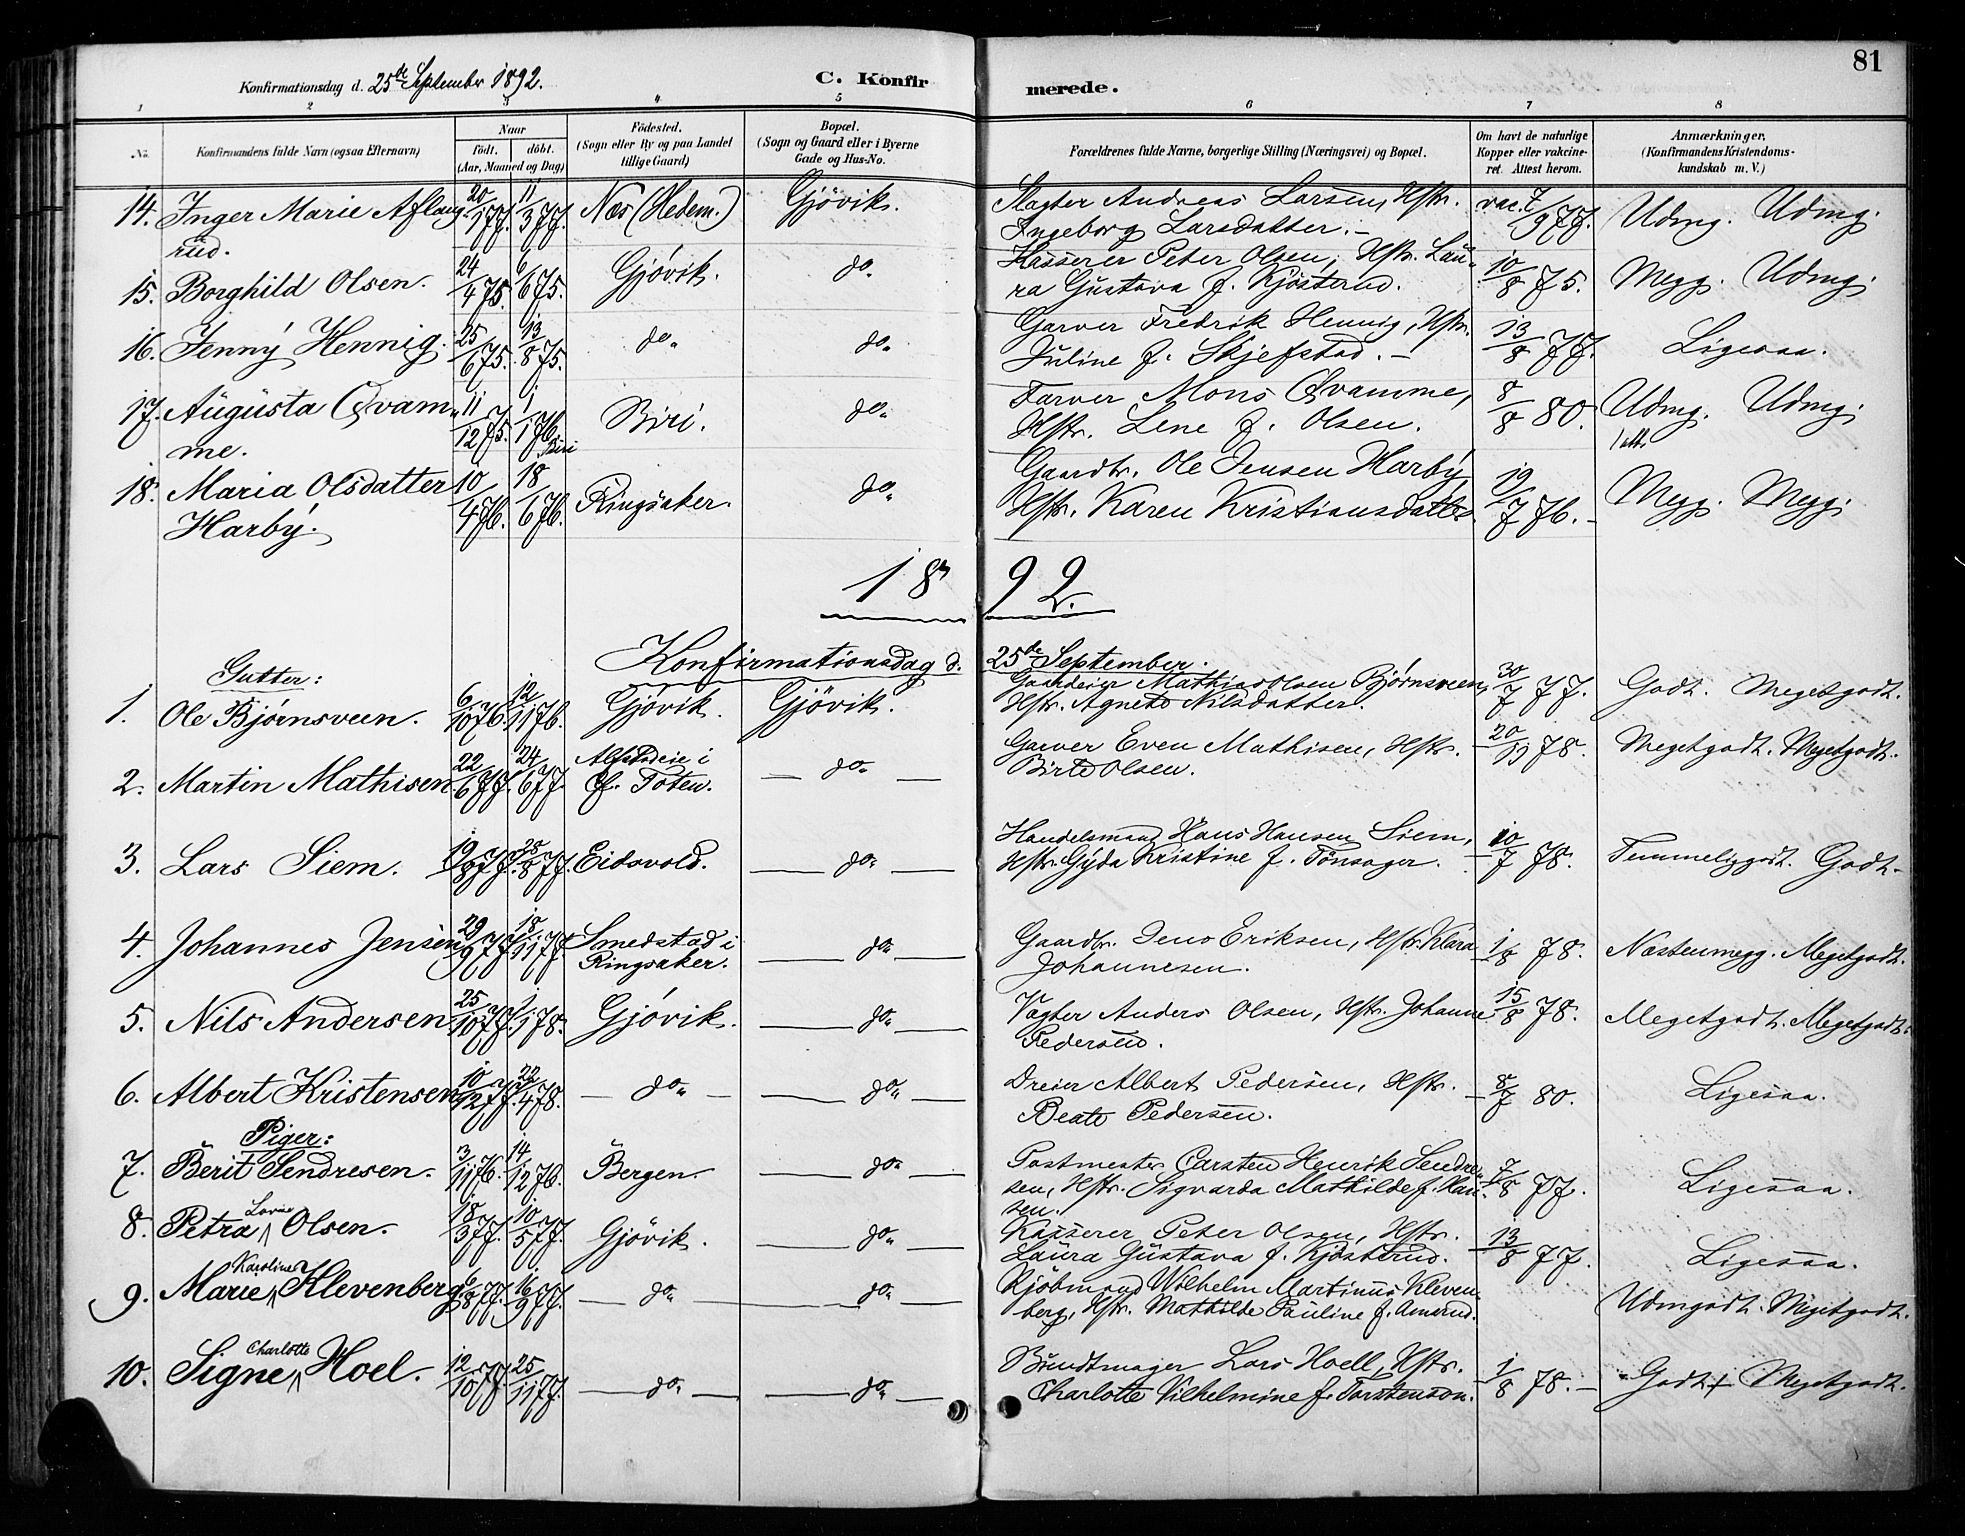 81
Konfirmationsdag d. 25de September 1892. C. Konfirmerede.
1 2 3 4 5 6 7 8
No. Konfirmandens fulde Navn (ogsaa Efternavn) Naar födt. döbt. (Aar, Maaned og Dag) Födested. (Sogn eller By og paa Landet tillige Gaard) Bopæl. (Sogn og Gaard eller i Byerne Gade og Hus-No. Forældrenes fulde Navne, borgerlige Stilling (Næringsvei) og Bopæl. Om havt de naturlige Kopper eller vakcineret. Attest herom. Anmærkninger. (Konfirmandens Kristendomskundskab m. V.)
14. Inger Marie Aflangrud. 20/1 77. 11/3 77. Næs (Hedem.) Gjövik. Slagter Andreas Larsen, Hstr. Ingeborg Larsdatter. vac. 7/9 77. Udmg. Udmg.
15. Borghild Olsen. 24/4 75. 6/6 75. Gjövik. do. Kasserer Peter Olsen, Hstr. Laura Gustava f. Kjøsterud. 10/8 75. Megg. Udmg.
16. Jenny Hennig. 25/6 75. 13/8 75. do. do. Garver Fredrik Hennig, Hstr. Juline f. Skjefstad. 13/8 77. Ligesaa.
17. Augusta Qvamme. 11/12 75. 1/1 76. Biri Biri. do. Farver Mons Qvamme, Hstr. Lene f. Olsen. 8/8 80. Udmg. Udmg.
1 att.
18. Maria Olsdatter Harby. 10/4 76. 18/6 76. Ringsaker. do. Gaardbr. Ole Jensen Harby Hstr. Karen Kristiansdatter. 19/7 76. Megg. Megg.
1892.
Konfirmationsdag d. 25de September.
Gutter:
1. Ole Bjørnsveen. 6/10 76. 12/11 76. Gjövik. Gjövik. Gaardeier Mathias Olsen Bjørnsveen, Hstr. Agnete Nilsdatter. 30/7 77. Godt. Megetgodt.
2. Martin Mathisen 22/6 77. 24/6 77. i Ø. Toten. do. Garver Even Mathisen, Hstr. Birte Olsen. 20/11 78. Megetgodt. Megetgodt.
3. Lars Siem. 19/8 77. 25/8 77. Eidsvold. do. Handelsmand Hans Hansen Siem, Hstr. Gyda Kristine f. Tønsager. 10/7 78. Temmeliggodt. Godt.
4. Johannes Jensen 29/9 77. 18/11 77. Smedstad i Ringsaker. do. Gaardbr. Jens Eriksen, Hstr. Klara Johannesen. 1/8 78. Næstenmegg. Megetgodt.
5. Nils Andersen 25/10 77. 1/1 78. Gjövik. do. Vagter Anders Olsen, Hstr. Johanne Pedersen. 15/8 78. Megetgodt. Megetgodt.
6. Albert Kristensen 10/12 77. 22/4 78. do. do. Dreier Albert Pedersen, Hstr. Beate Pedersen. 8/7 80. Ligesaa.
Piger:
7. Berit Sendresen. 3/11 76. 14/12 76. Bergen. do. Postmester Carsten Henrik Sendresen, Hstr. Sigvarda Mathilde f. Hansen. 7/8 77. Ligesaa.
8. Petra Lovise Olsen. 18/3 77. 10/5 77. Gjövik. do. Kasserer Peter Olsen, Hstr. Laura Gustava f. Kjøsterud. 13/8 77. Ligesaa.
9. Marie Karoline Klevenberg. 6/8 77. 16/9 77. do. do. Kjöbmand Wilhelm Martinus Klevenberg, Hstr. Mathilde Pauline f. Amerud. Udmgodt. Megetgodt.
10. Signe Charlotte Hoel. 12/10 77. 25/11 77. do. do. Bundtmager Lars Hoell, Hstr. Charlotte Vilhelmine f. Torstenson. 1/8 78. Godt+ Megetgodt.